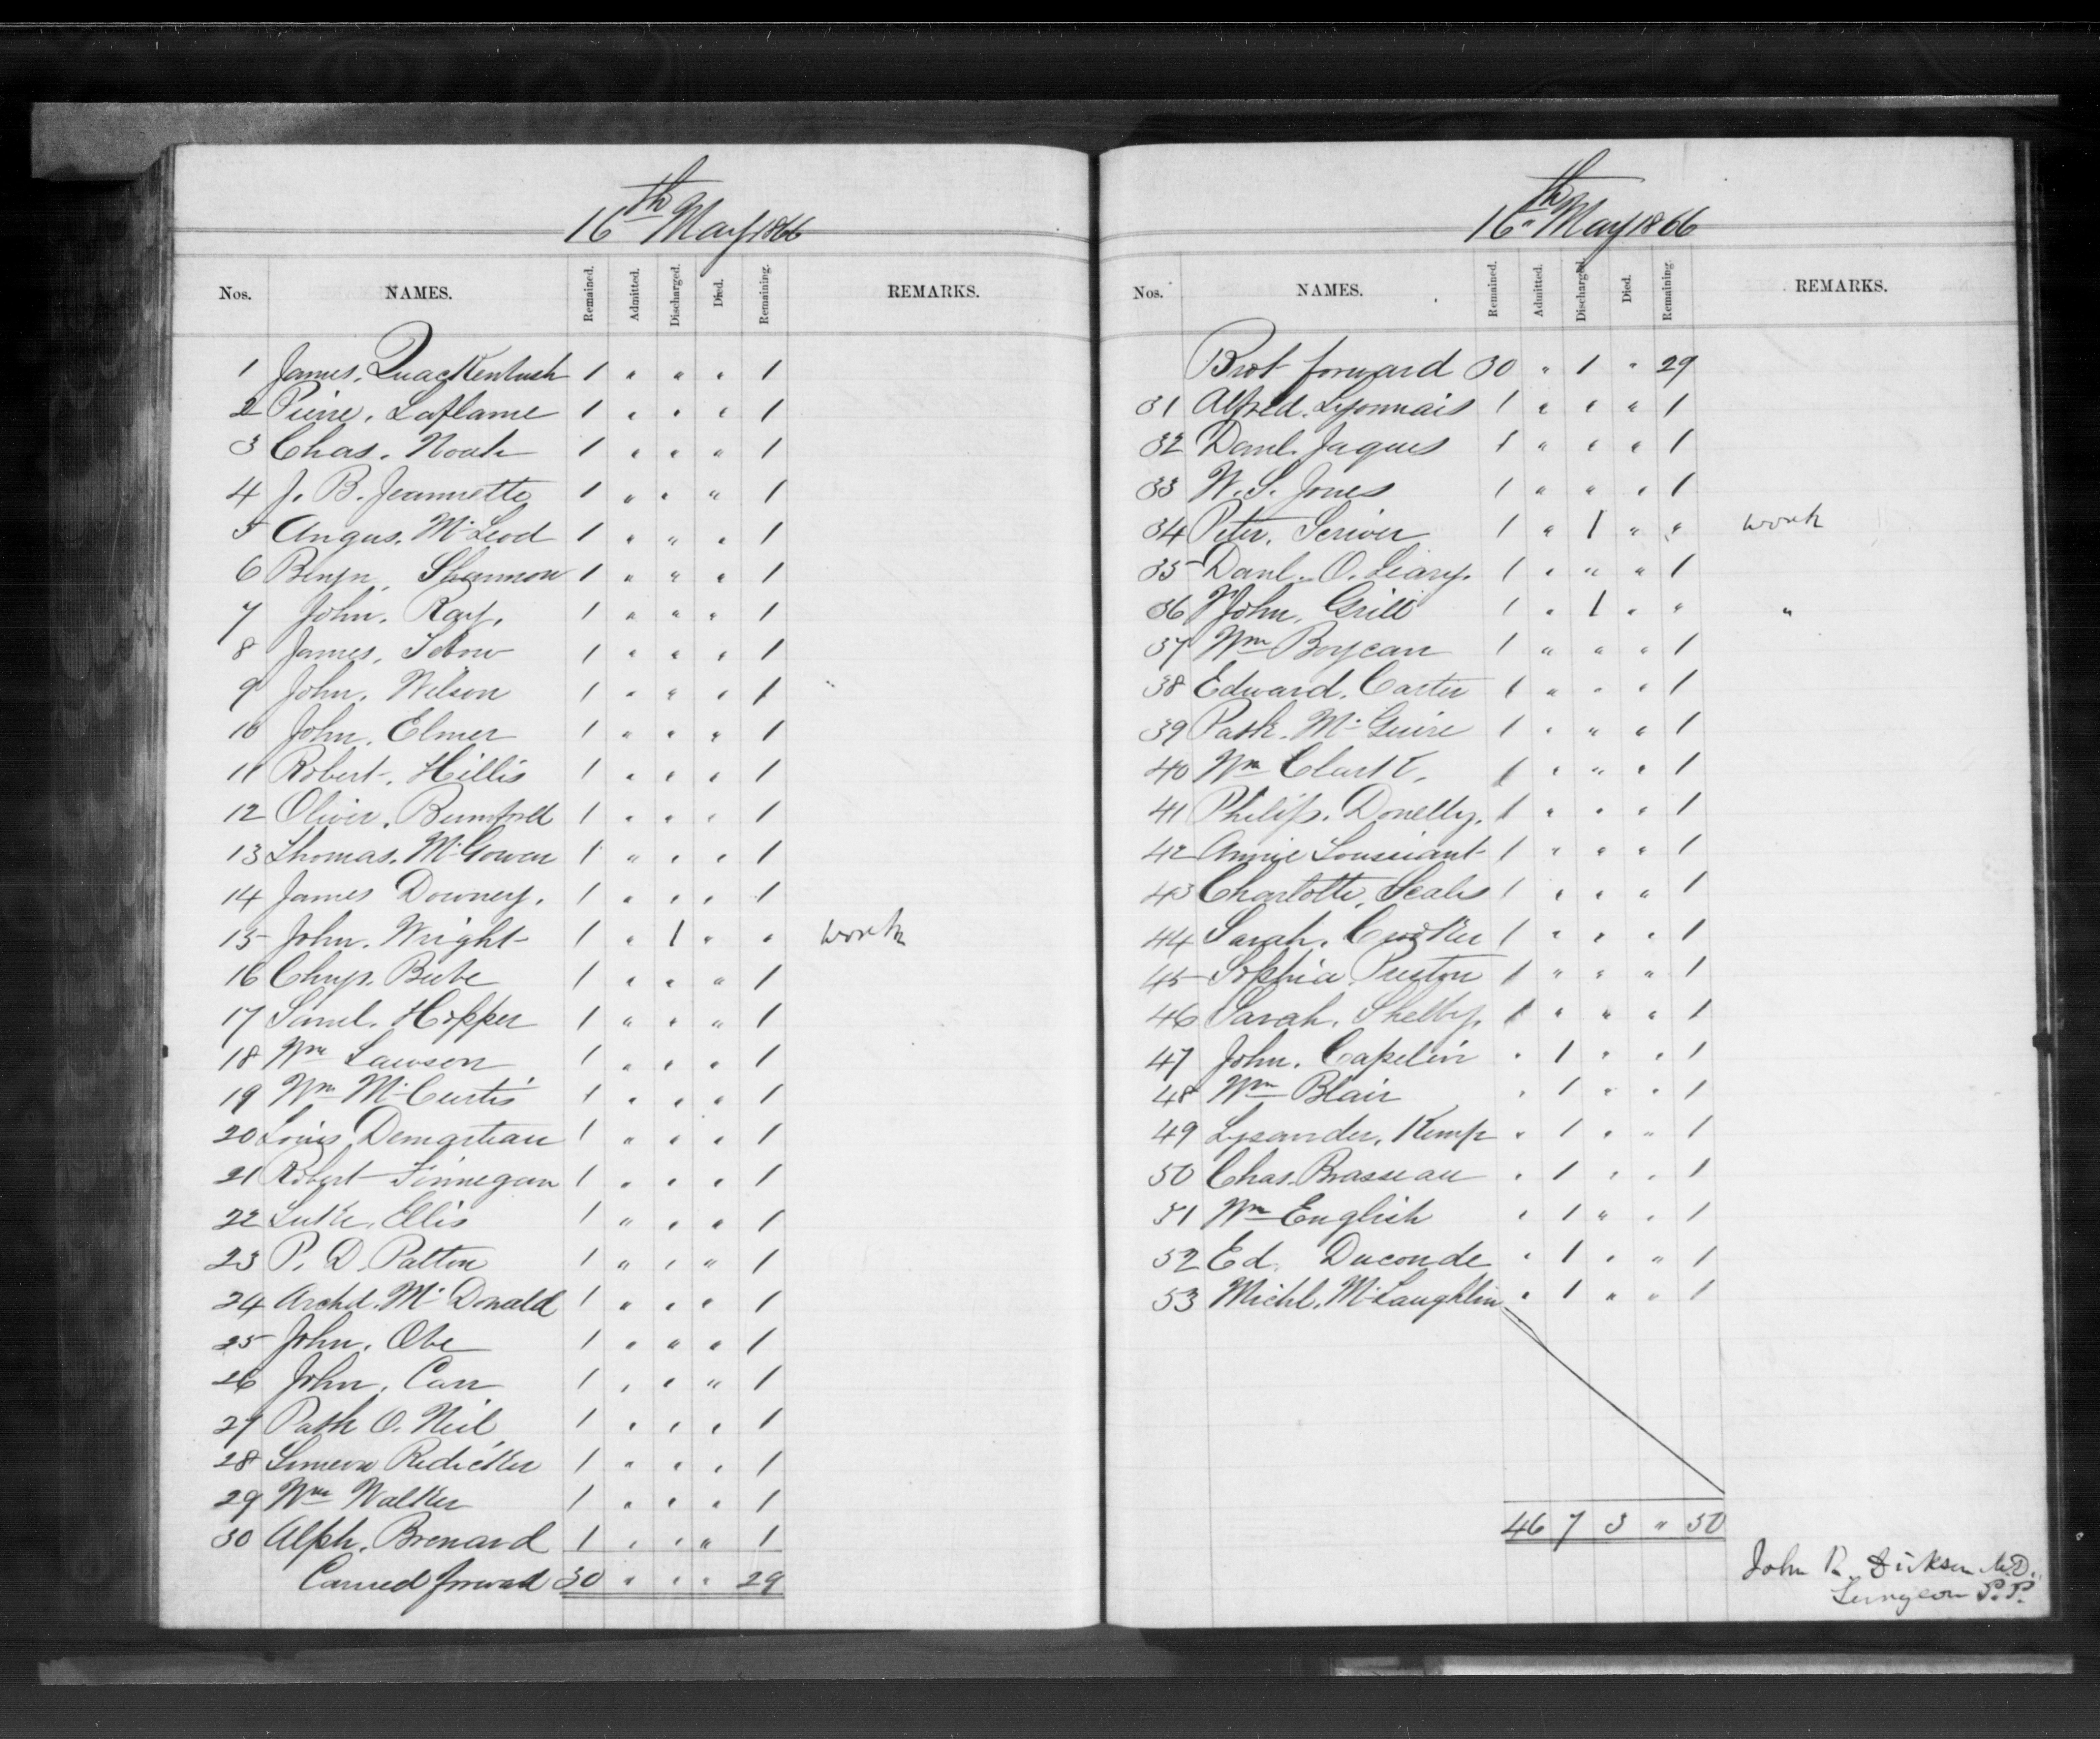 16th May 1866
Nos. NAMES. Remained. Admitted. Discharged. Died. Remaining. REMARKS.
1 James. Quackenbush 1 " " " 1
2 Pierre. Laflame 1 " " " 1
3 Chas. Noah 1 " " " 1
4 J. B. Jeannette 1 " " " 1
5 Angus. McLeod 1 " " " 1
6 Benjn. Shannon 1 " " " 1
7 John. Ray. 1 " " " 1
8 James. 1 " " " 1
9 John. Wilson 1 " " " 1
10 John. Elmer 1 " " " 1
11 Robert. Hillis 1 " " " 1
12 Oliver. Bumford 1 " " " 1
13 Thomas. McGowan 1 " " " 1
14 James Downey. 1 " " " 1
15 John. Wright 1 " 1 " " work
16 Chryr. Beebe 1 " " " 1
17 Saml. Hopper 1 " " " 1
18 Wm Lawson 1 " " " 1
19 Wm McCurtis 1 " " " 1
20 Louis Demarteau 1 " " " 1
21 Robert Finnegan 1 " " " 1
22 Luke. Ellis 1 " " " 1
23 P. D. Patton 1 " " " 1
24 Archd. McDonald 1 " " " 1
25 John. Obe 1 " " " 1
26 John. Carr 1 " " " 1
27 Patk O. Neil 1 " " " 1
28 Simeon Redicker 1 " " " 1
29 Wm Walker 1 " " " 1
30 Alph. Brenard 1 " " " 1
Carried forward 30 " " " 29
16th May 1866
Nos. NAMES. Remained. Admitted. Discharged. Died. Remaining. REMARKS.
Brot forward 30 " 1 " 29
31 Alfred. Lyonnais 1 " " " 1
32 Danl. Jaques 1 " " " 1
33 W. S. Jones 1 " " " 1
34 Peter. Scriver 1 " 1 " " work
35 Danl. O. Leary. 1 " " " 1
36 John. Grill 1 " 1 " " "
37 Wm Boycan 1 " " " 1
38 Edward. Carter 1 " " " 1
39 Patk. McGuire 1 " " " 1
40 Wm Clark. 1 " " " 1
41 Philip. Donelly. 1 " " " 1
42 Annie Toussiant 1 " " " 1
43 Charlotte. Scales 1 " " " 1
44 Sarah. 1 " " " 1
45 Sophia Preston 1 " " " 1
46 Sarah. Shelby. 1 " " " 1
47 John. Capelin " 1 " " 1
48 Wm Blair " 1 " " 1
49 Lysander. Kemp " 1 " " 1
50 Chas. Brasseau " 1 " " 1
51 Wm English " 1 " " 1
52 Ed. Duconde " 1 " " 1
53 Michl. McLaughlin " 1 " " 1
46 7 3 " 50
John R. Dickson M.D.
Surgeon P.P.